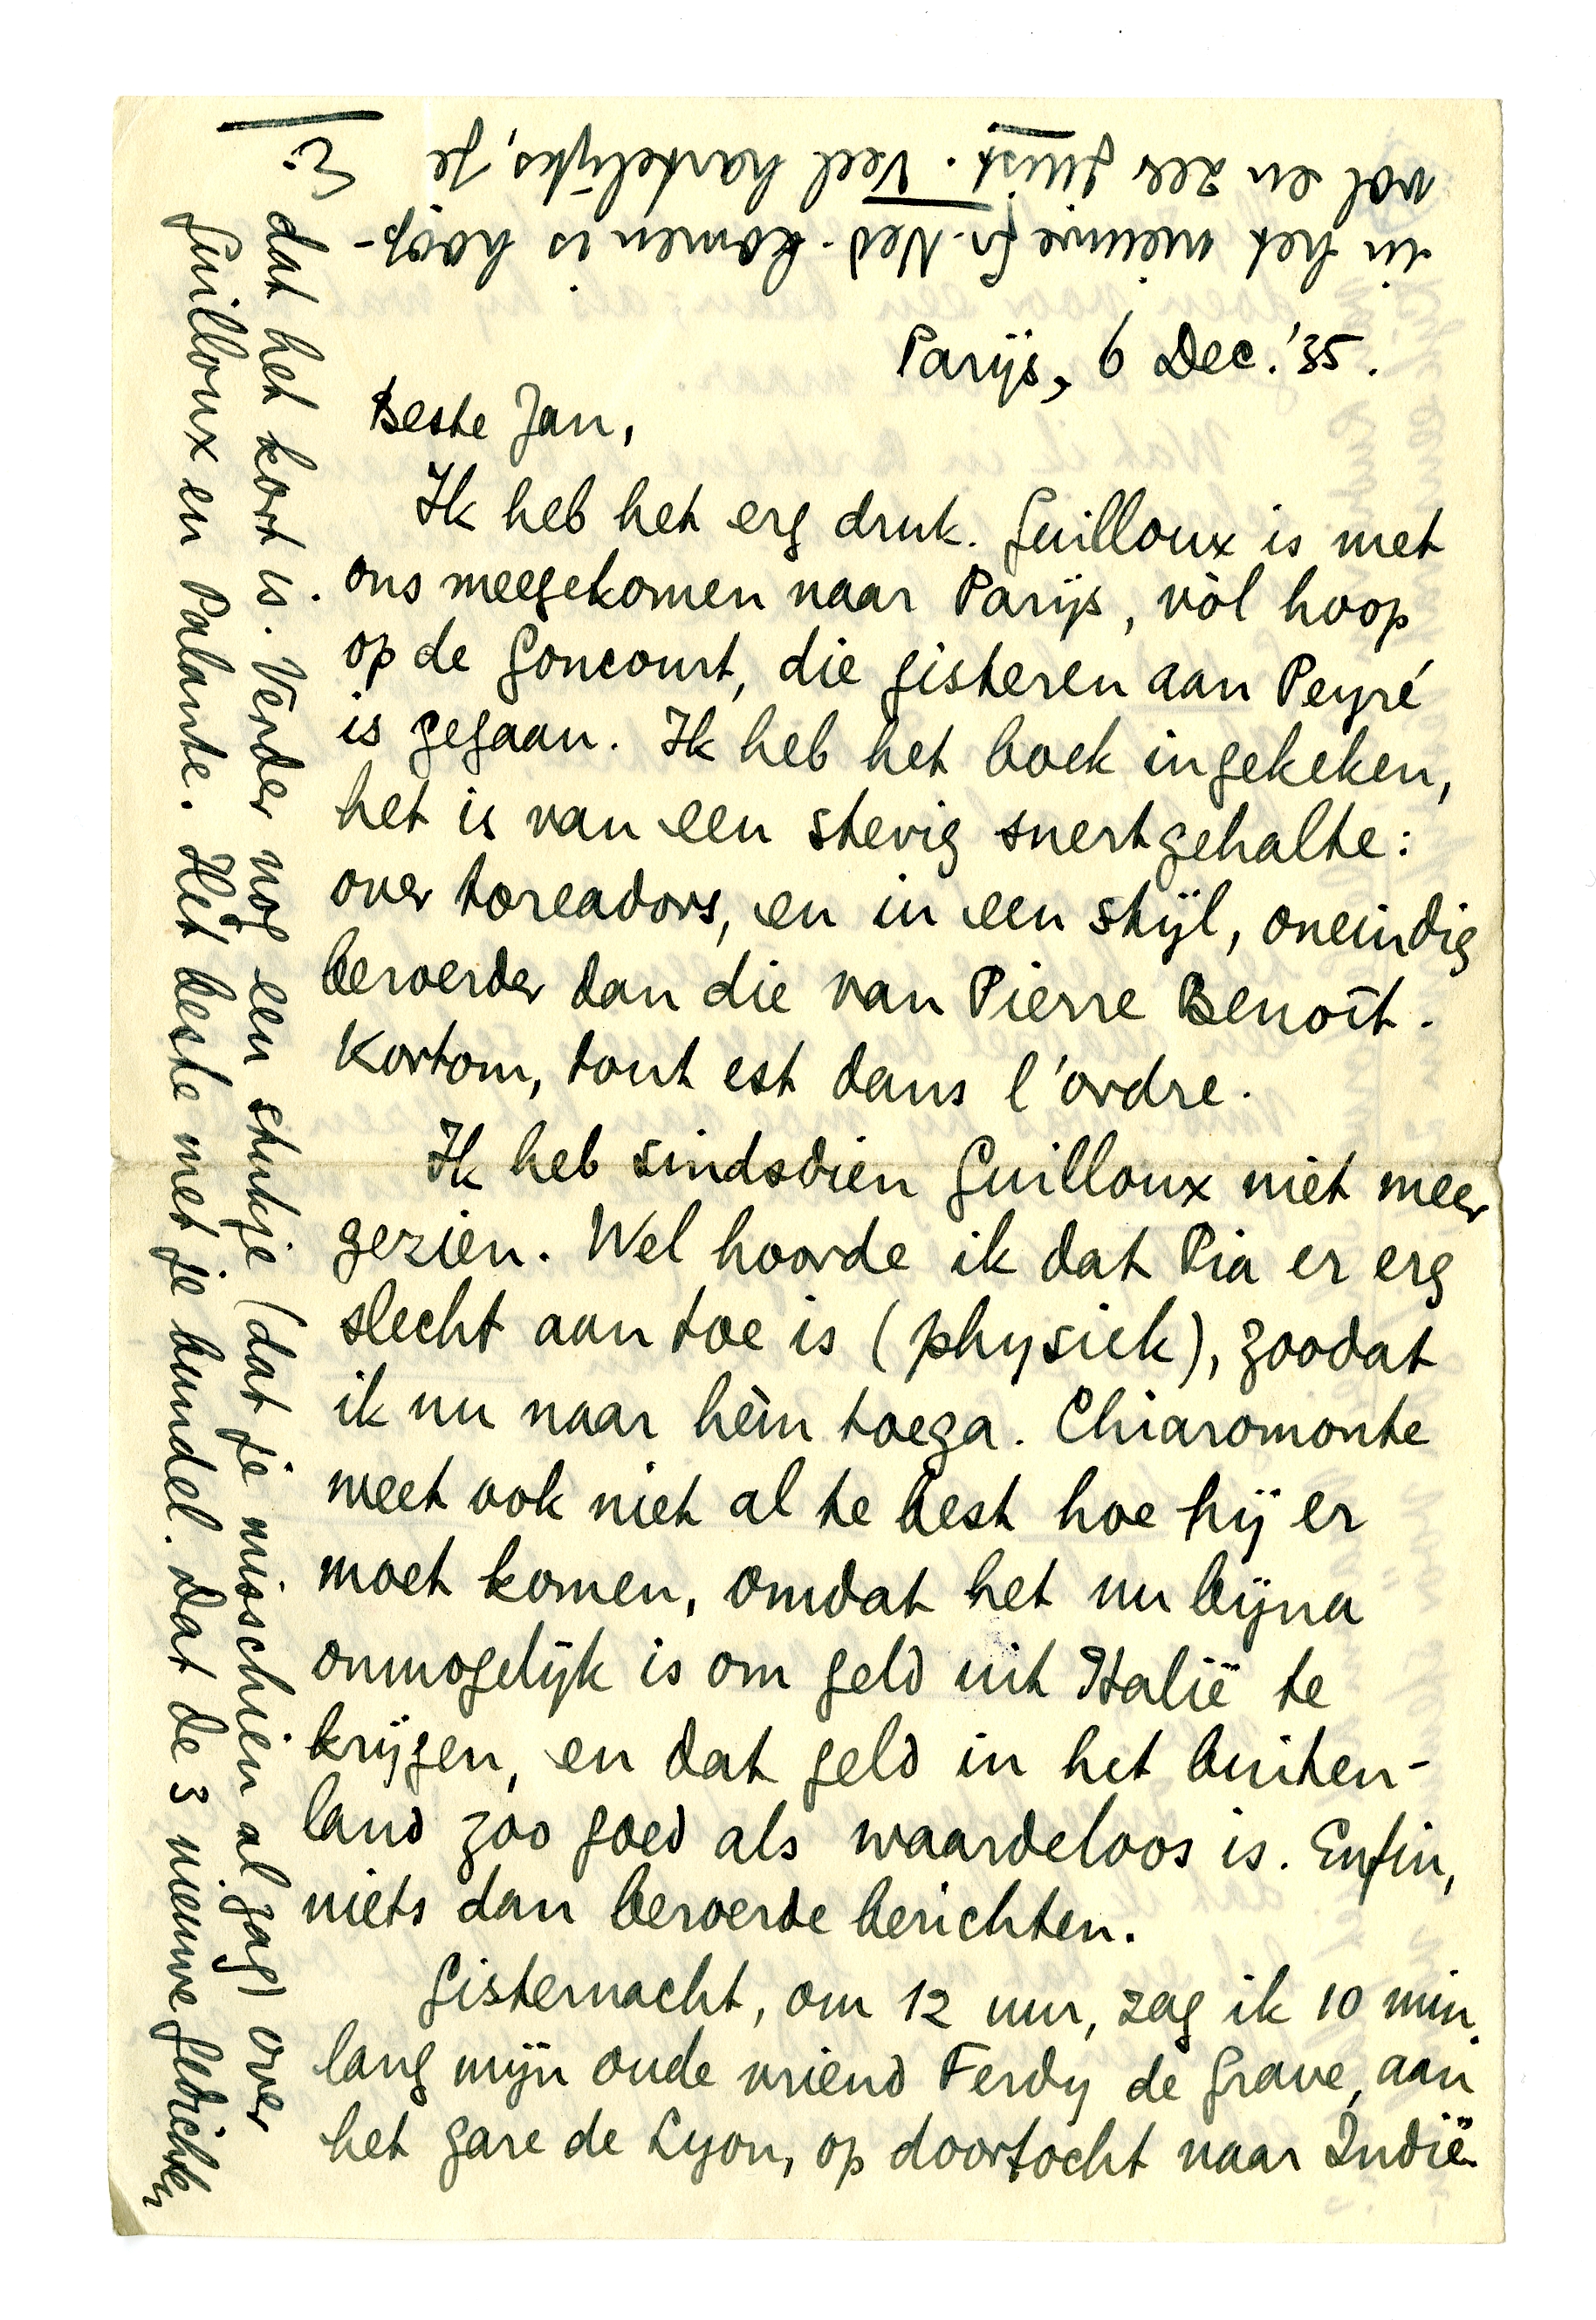 Parijs, 6 Dec.'35.
Beste Jan,
Ik heb het erg druk. Guilloux is met
ons meegekomen naar Parijs, vòl hoop
op de Goncourt, die gisteren aan Peyré
is gegaan. Ik heb het boek ingekeken,
het is van een stevig snertgehalte:
over toreadors, en in een stijl, oneindig
beroerder dan die van Pierre Benoît.
Kortom, tout est dans l'ordre.
Ik heb sindsdien Guilloux niet meer
gezien. Wel hoorde ik dat Pia er erg
slecht aan toe is (physiek), zoodat
ik nu naar hèm toega. Chiaromonte
weet ook niet al te best hoe hij er
moet komen, omdat het nu bijna
onmogelijk is om geld uit Italië te
krijgen, en dat geld in het buiten-
land zoo goed als waardeloos is. Enfin,
niets dan beroerde berichten.
Gisternacht, om 12 uur, zag ik 10 min.
lang mijn oude vriend Ferdy de Grave, aan
het gare de Lyon, op doortocht naar Indië.
dat het kort is. Verder nog een stukje (dat je misschien al zag) over
Guilloux en Palante. Het beste met je bundel. Dat de 3 nieuwe gedichten
in het nieuwe Gr. Ned. komen is hoop-
vol en zeer juist. Veel hartelijks, je
E.